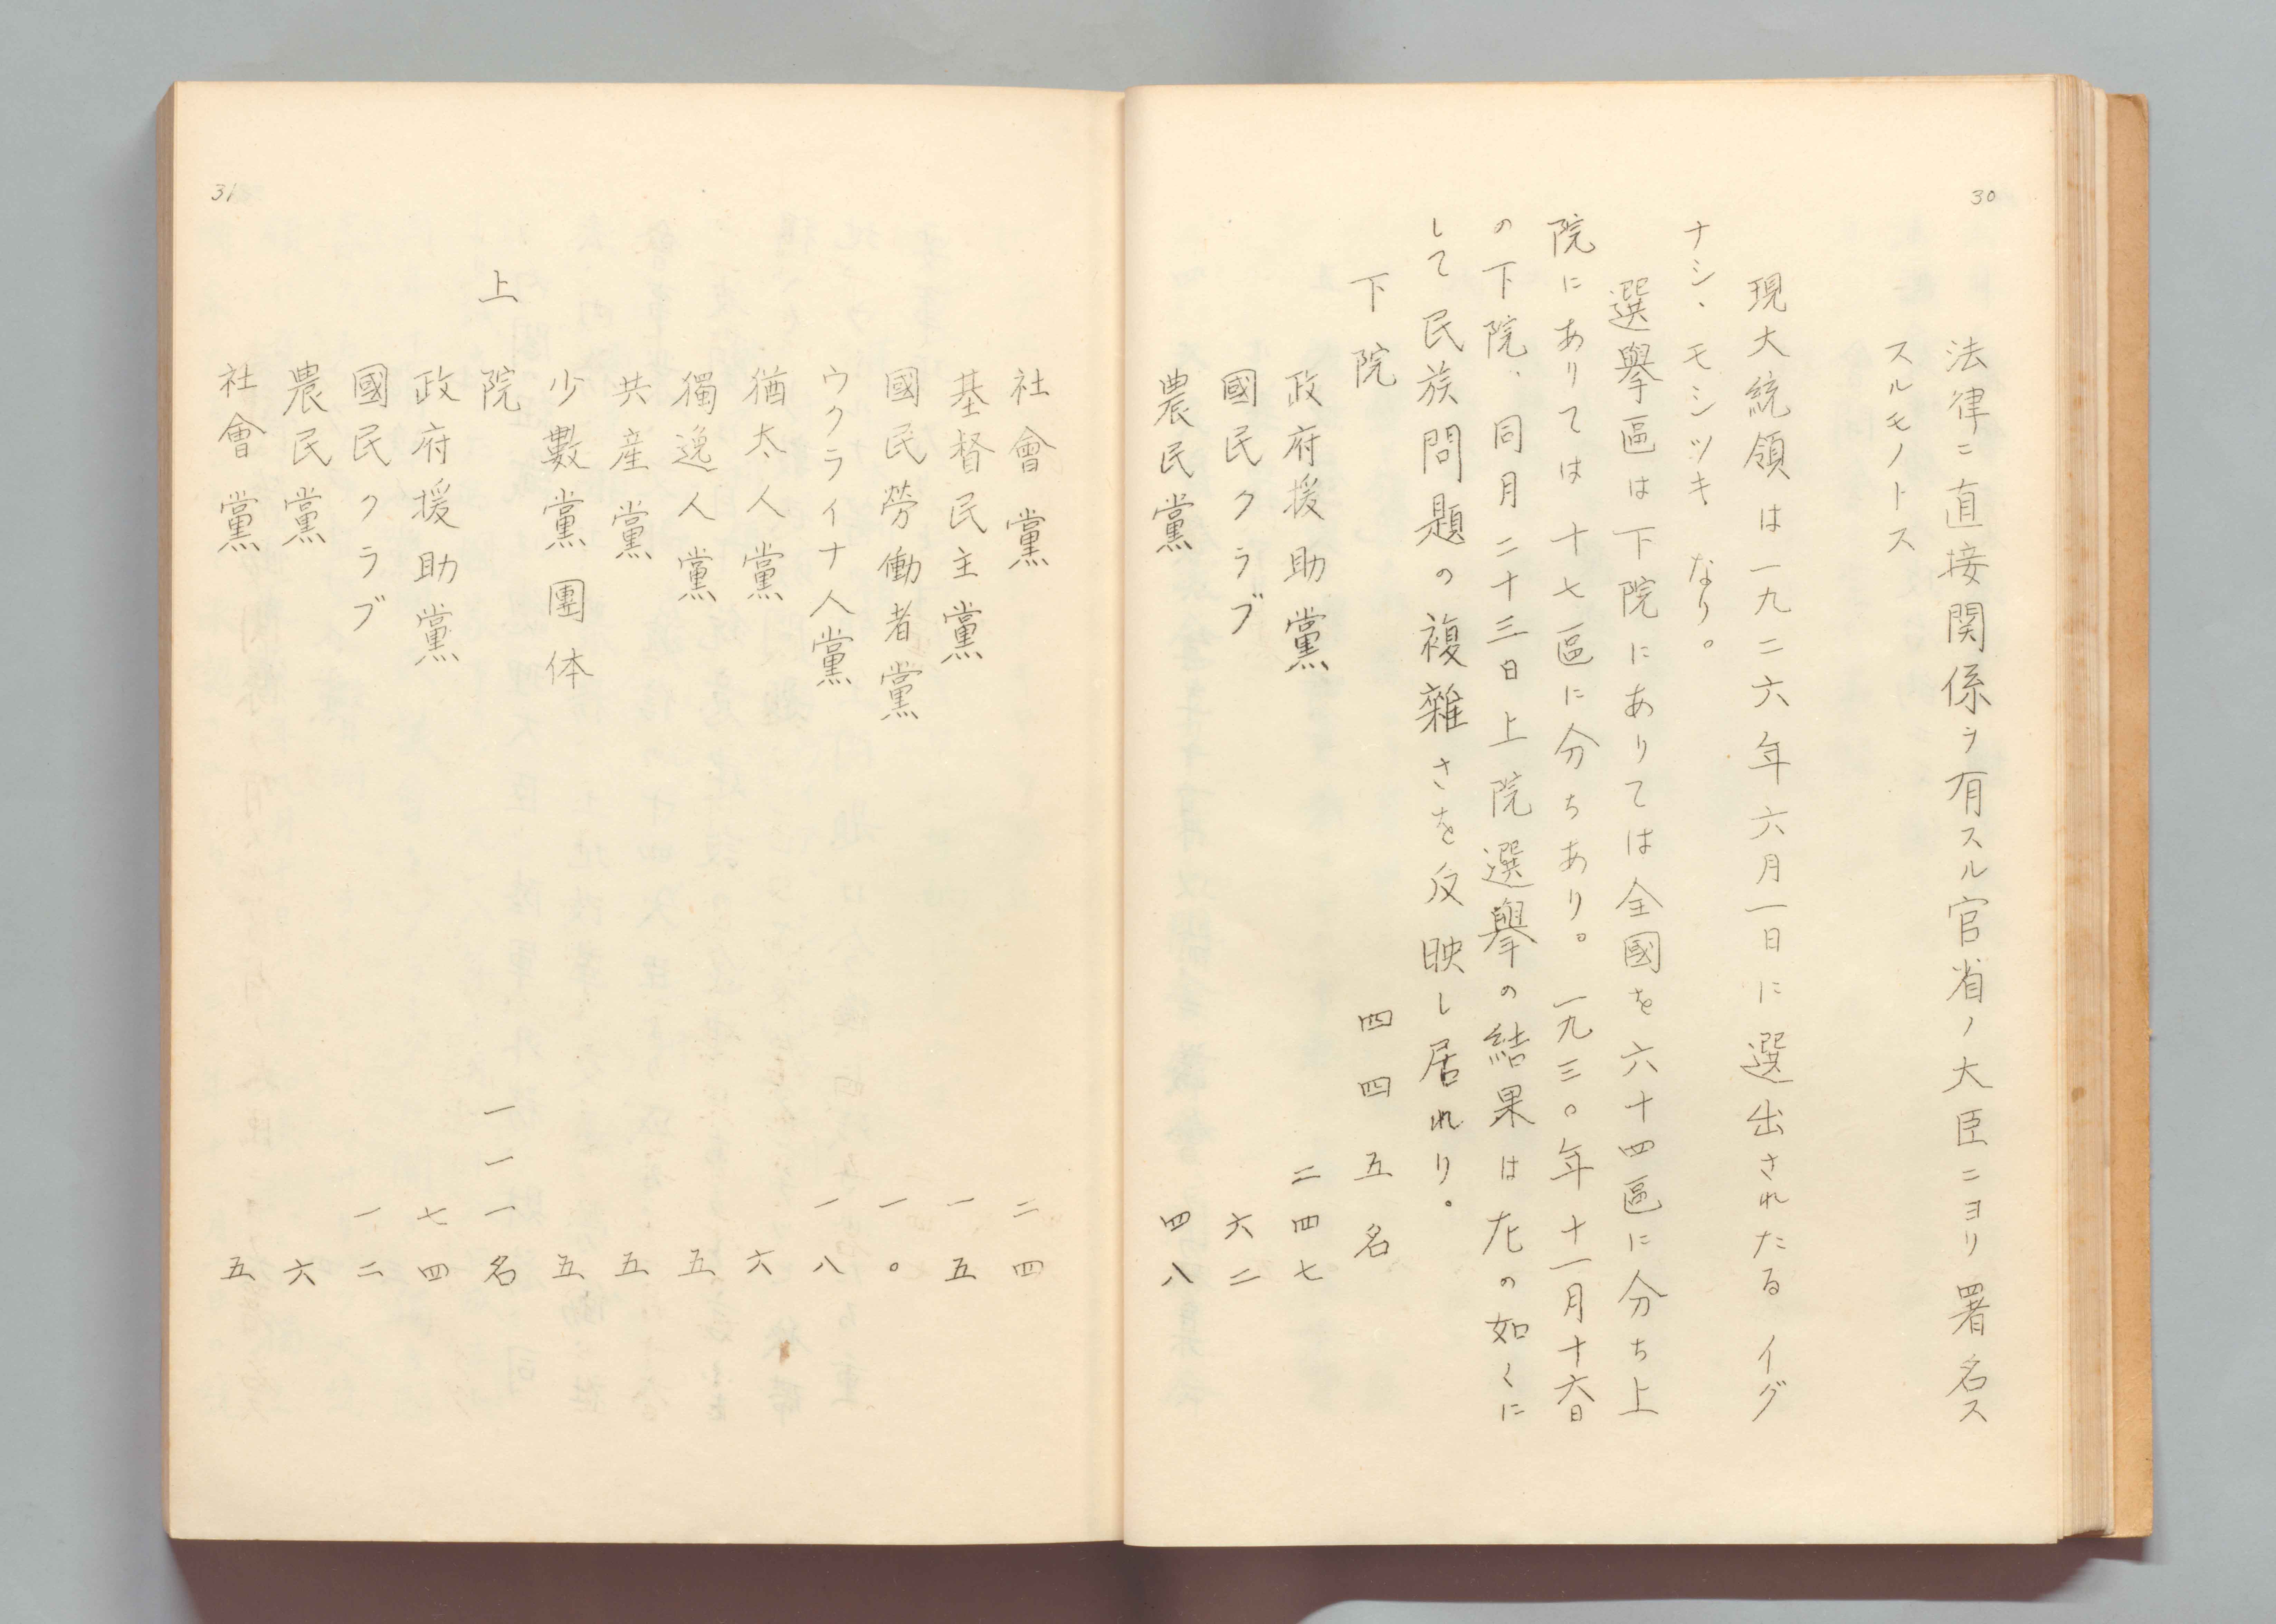 30
法律ニ直接関係ヲ有スル官省ノ大臣ニヨリ署名ス
スルモノトス
現大統領は一九二六年六月一日に選出されたるイグ
ナシ、モシツキなり。
選擧區は下院にありては全國を六十四區に分ち上
院にありては十七區に分ちあり。一九三〇年十一月十六日
の下院、同月二十三日上院選擧の結果は左の如くに
して民族問題の複雜さを反映し居れり。
下院 四四五名
政府援助黨 二四七
國民クラブ 六二
農民黨 四八
31
社會黨 二四
基督民主黨 一五
國民勞働者黨 一〇
ウクライナ人黨 一八
猶太人黨 六
獨逸人黨 五
共産黨 五
少數黨團体 五
上院 一一一名
政府援助黨 七四
國民クラブ 一二
農民黨 六
社會黨 五